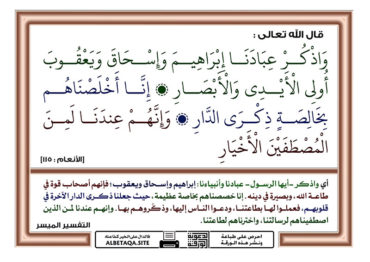 قال الله تعالى :
وَاذْكُرْ عِبَادَنَا إِبْرَاهِيمَ وَإِسْحَاقَ وَيَعْقُوبَ
أُولِي الْأَيْدِي وَالْأَبْصَارِ ۞ إِنَّا أَخْلَصْنَاهُم
بِخَالِصَةٍ ذِكْرَى الدَّارِ ۞ وَإِنَّهُمْ عِندَنَا لَمِنَ
الْمُصْطَفَيْنَ الْأَخْيَارِ
[الأنعام : 115]
أي واذكر -أيها الرسول- عبادنا وأنبياءنا: إبراهيم وإسحاق ويعقوب؛ فإنهم أصحاب قوة في
طاعة الله، وبصيرة في دينه. إنا خصصناهم بخاصة عظيمة، حيث جعلنا ذكرى الدار الآخرة في
قلوبهم، فعملوا لها بطاعتنا، ودعوا الناس إليها، وذكروهم بها. وإنهم عندنا لمن الذين
اصطفيناهم لرسالتنا، واخترناهم لطاعتنا.
التفسير الميسر
احرص على طباعة
ونشر هذه الورقة
فالدال على الخير كفاعله
ALBETAQA.SITE